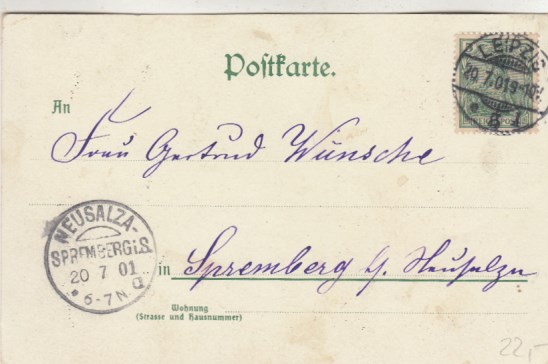 LEIPZIG
20.7.01 9-10
8
Postkarte.
An
Frau Gertrud Wünsche
NEUSALZA-
SPREMBERG i.S.
20 7 01
* 6-7 N
in Spremberg b/ Neusalza
Wohnung
(Strasse und Hausnummer)
22,-